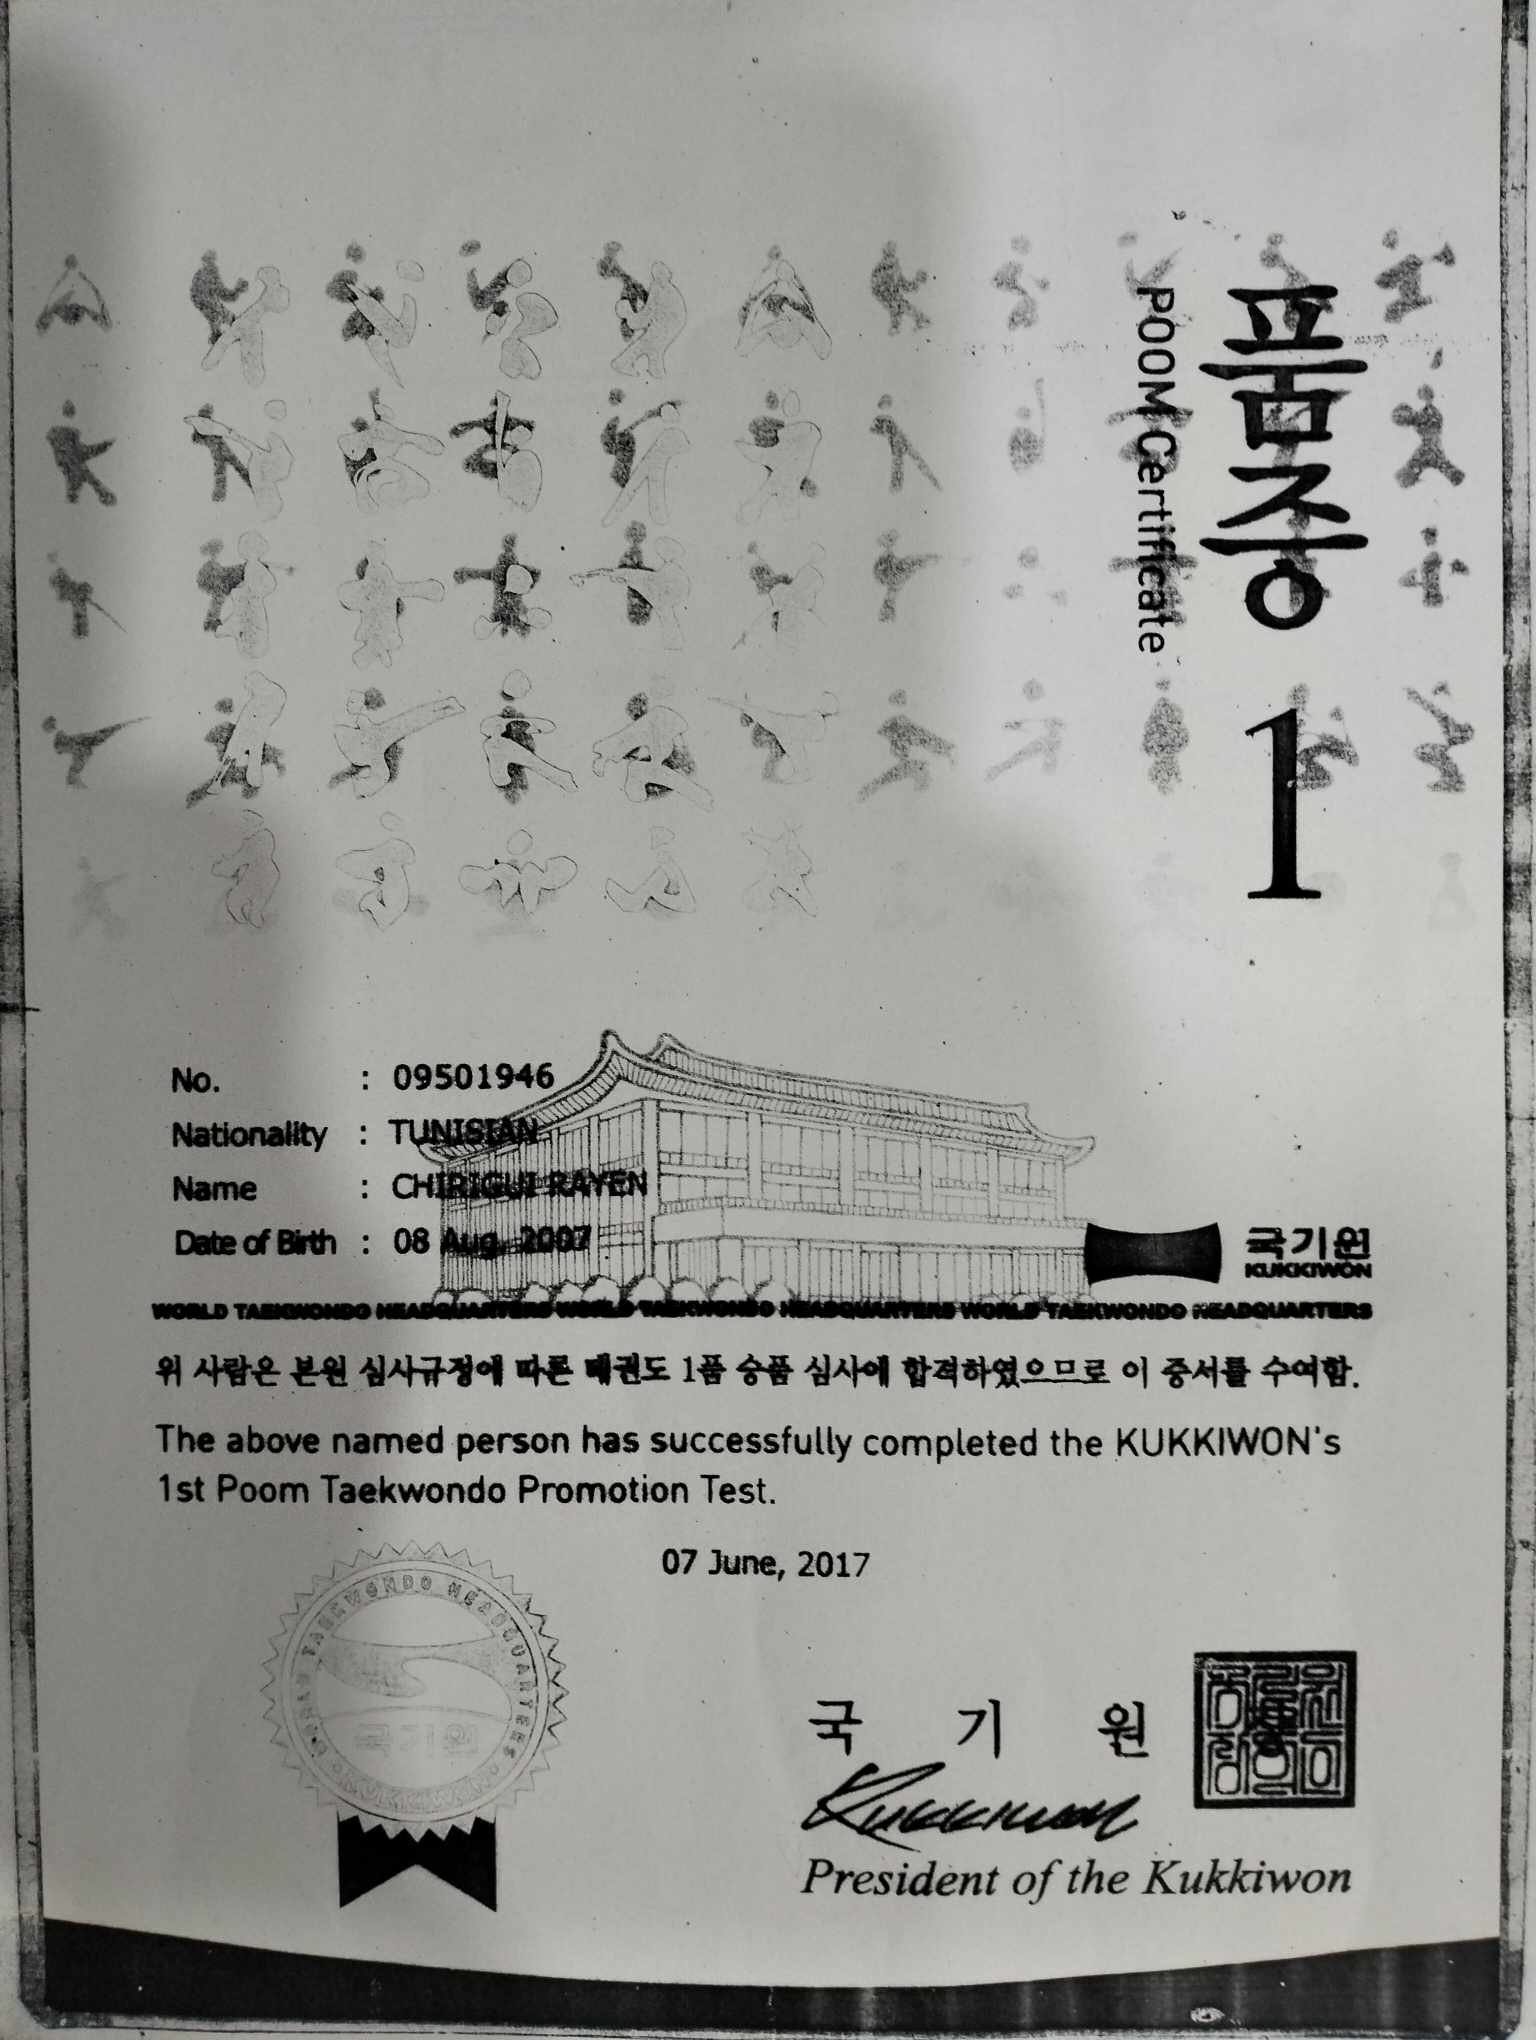 품증
POOM Certificate
1
No. : 09501946
Nationality : TUNISIAN
Name : CHIRIGUI RAYEN
Date of Birth : 08 Aug, 2007
국기원
KUKKIWON
WORLD TAEKWONDO HEADQUARTERS WORLD TAEKWONDO HEADQUARTERS WORLD TAEKWONDO HEADQUARTERS
위 사람은 본원 심사규정에 따른 태권도 1품 승품 심사에 합격하였으므로 이 증서를 수여함.
The above named person has successfully completed the KUKKIWON's
1st Poom Taekwondo Promotion Test.
07 June, 2017
WORLD TAEKWONDO HEADQUARTERS
국기원
KUKKIWON
국 기 원
Kukkiwon
President of the Kukkiwon